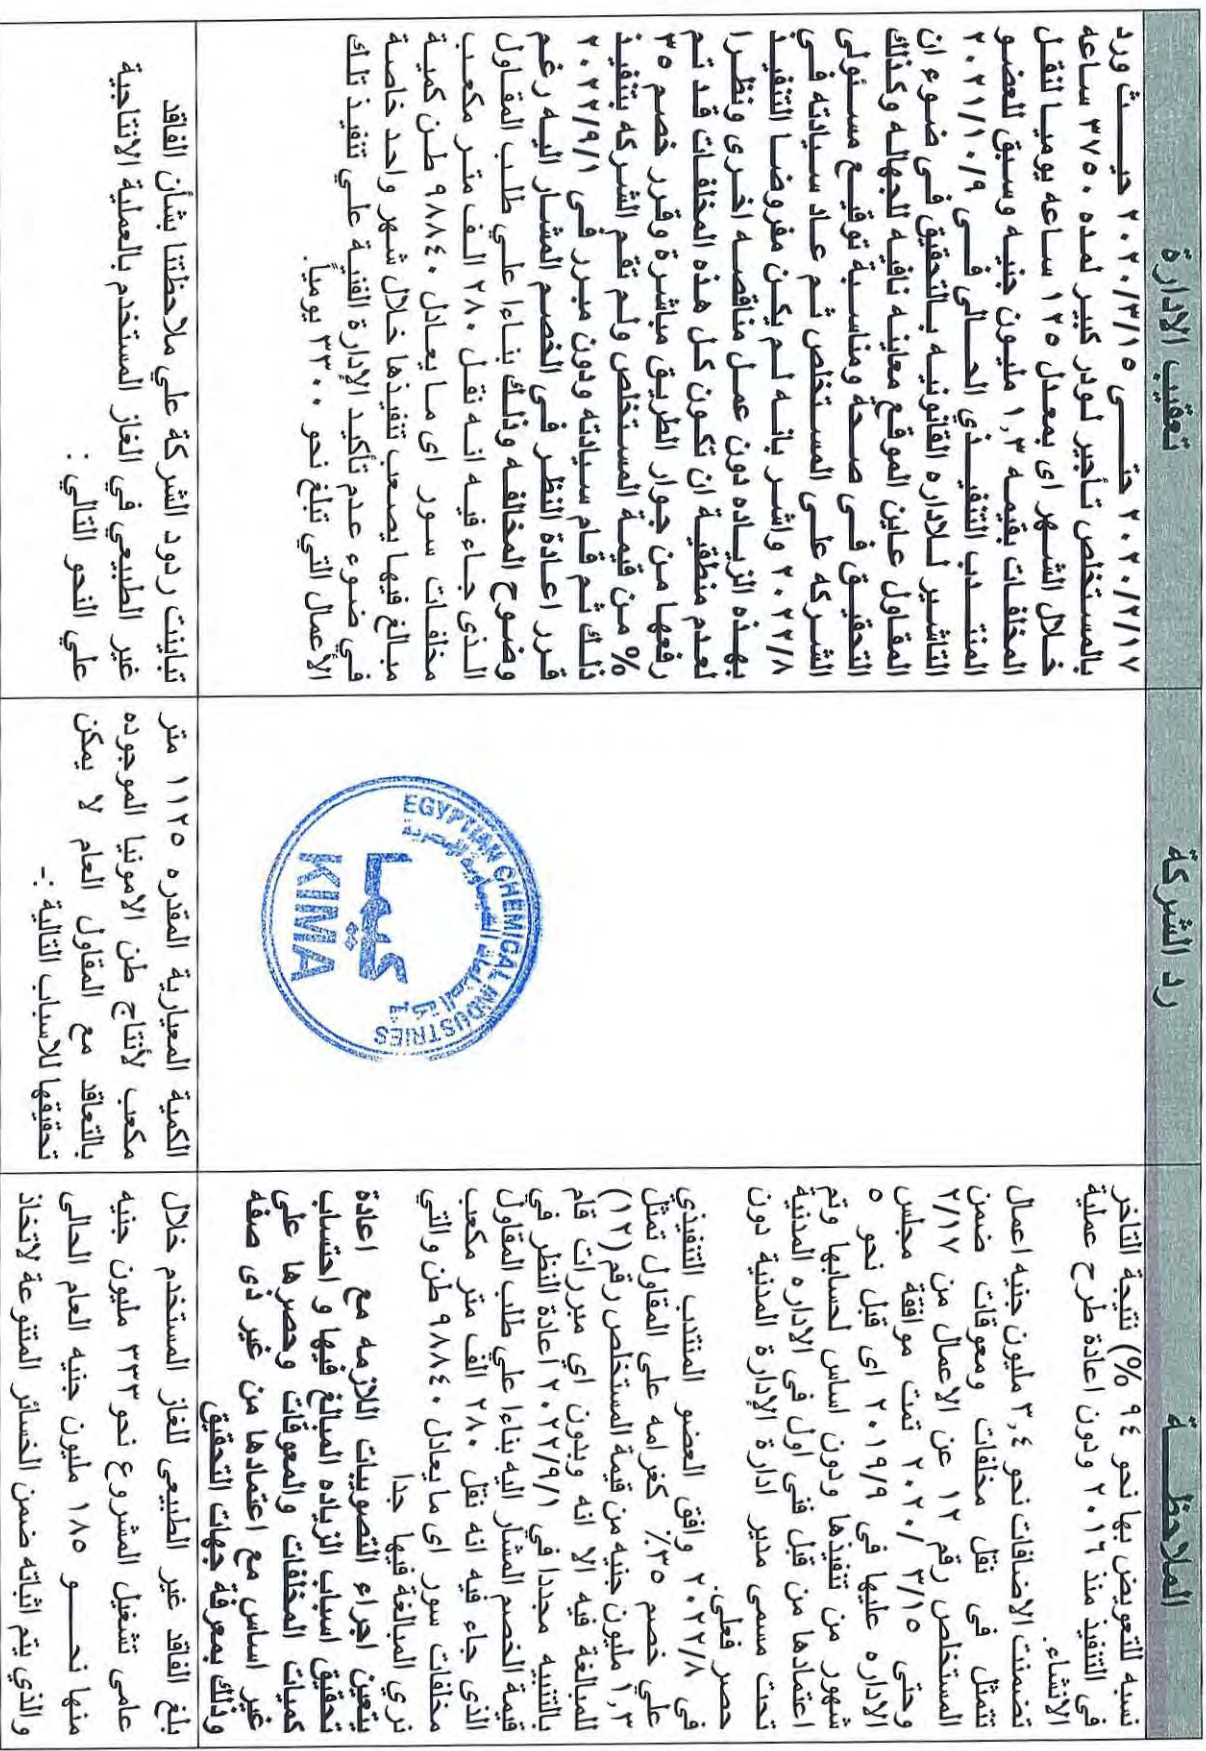 الملاحظـــة
رد الشركة
تعقيب الادارة
نسبه للتعويض بها نحو ٩٤ %) نتيجة التاخر
فى التنفيذ منذ ٢٠١٦ ودون اعادة طرح عملية
الانشاء.
تضمنت الاضافات نحو ٣,٤ مليون جنيه اعمال
تتمثل فى نقل مخلفات ومعوقات ضمن
المستخلص رقم ١٢ عن الاعمال من ٢/١٧
وحتى ٢٠٢٠/٣/١٥ تمت موافقة مجلس
الاداره عليها فى ٢٠١٩/٩ اى قبل نحو ٥
شهور من تنفيذها ودون اساس لحسابها وتم
اعتمادها من قبل فنى اول فى الاداره المدنية
تحت مسمى مدير ادارة الإدارة المدنية دون
حصر فعلى.
فى ٢٠٢٢/٨ وافق العضو المنتدب التنفيذي
علي خصم ٣٥٪ كغرامه على المقاول تمثل
١,٣ مليون جنيه من قيمة المستخلص رقم (١٢)
للمبالغة فيه الا انه وبدون اي مبررات قام
بالتنبيه مجددا في ٢٠٢٢/٩/١ اعادة النظر في
قيمة الخصم المشار اليه بناءا علي طلب المقاول
الذى جاء فيه انه نقل ٢٨٠ الف متر مكعب
مخلفات سور اى ما يعادل ٩٨٨٤٠ طن والتي
نري المبالغة فيها جدا
يتعين اجراء التصويبات اللازمه مع اعادة
تحقيق اسباب الزياده المبالغ فيها و احتساب
كميات المخلفات والمعوقات وحصرها على
غير اساس مع اعتمادها من غير ذى صفه
وذلك بمعرفة جهات التحقيق
٢٠٢٠/٢/١٧ حتـــى ٢٠٢٠/٣/١٥ حيـــث ورد
بالمستخلص تأجير لودر كبير لمده ٣٧٥٠ ساعه
خلال الشهر اى بمعدل ١٢٥ ساعه يوميا لنقل
المخلفات بقيمه ١,٣ مليون جنيه وسبق للعضو
المنتدب التنفيذي الحالى فى ٢٠٢١/١٠/٩
التاشير للاداره القانونيه بالتحقيق فى ضوء ان
المقاول عاين الموقع معاينه نافيه للجهاله وكذلك
التحقيق فى صحة ومناسبة توقيع مسئولى
الشركه على المستخلص ثم عاد سيادته فى
٢٠٢٢/٨ واشر بانه لم يكن مفروضا التنفيذ
بهذه الزياده دون عمل مناقصه اخرى ونظرا
لعدم منطقية ان تكون كل هذه المخلفات قد تم
رفعها من جوار الطريق مباشرة وقرر خصم ٣٥
% من قيمة المستخلص ولم تقم الشركه بتنفيذ
ذلك ثم قام سيادته ودون مبرر فى ٢٠٢٢/٩/١
قرر اعادة النظر فى الخصم المشار اليه رغم
وضوح المخالفه وذلك بناءا علي طلب المقاول
الذى جاء فيه انه نقل ٢٨٠ الف متر مكعب
مخلفات سور اى ما يعادل ٩٨٨٤٠ طن كمية
مبالغ فيها يصعب تنفيذها خلال شهر واحد خاصة
في ضوء عدم تأكيد الإدارة الفنية علي تنفيذ تلك
الأعمال التي تبلغ نحو ٣٣٠٠ يومياً.
EGYPTIAN CHEMICAL INDUSTRIES
الصناعات الكيماوية المصرية
كيما
KIMA
بلغ الفاقد غير الطبيعى للغاز المستخدم خلال
عامى تشغيل المشروع نحو ٣٣٣ مليون جنيه
منها نحـــو ١٨٥ مليون جنيه العام الحالى
والذي يتم اثباته ضمن الخسائر المتنوعة لاتخاذ
الكمية المعيارية المقدره ١١٢٥ متر
مكعب لأنتاج طن الامونيا الموجوده
بالتعاقد مع المقاول العام لا يمكن
تحقيقها للاسباب التالية :-
تباينت ردود الشركة علي ملاحظتنا بشأن الفاقد
غير الطبيعي في الغاز المستخدم بالعملية الانتاجية
علي النحو التالي :